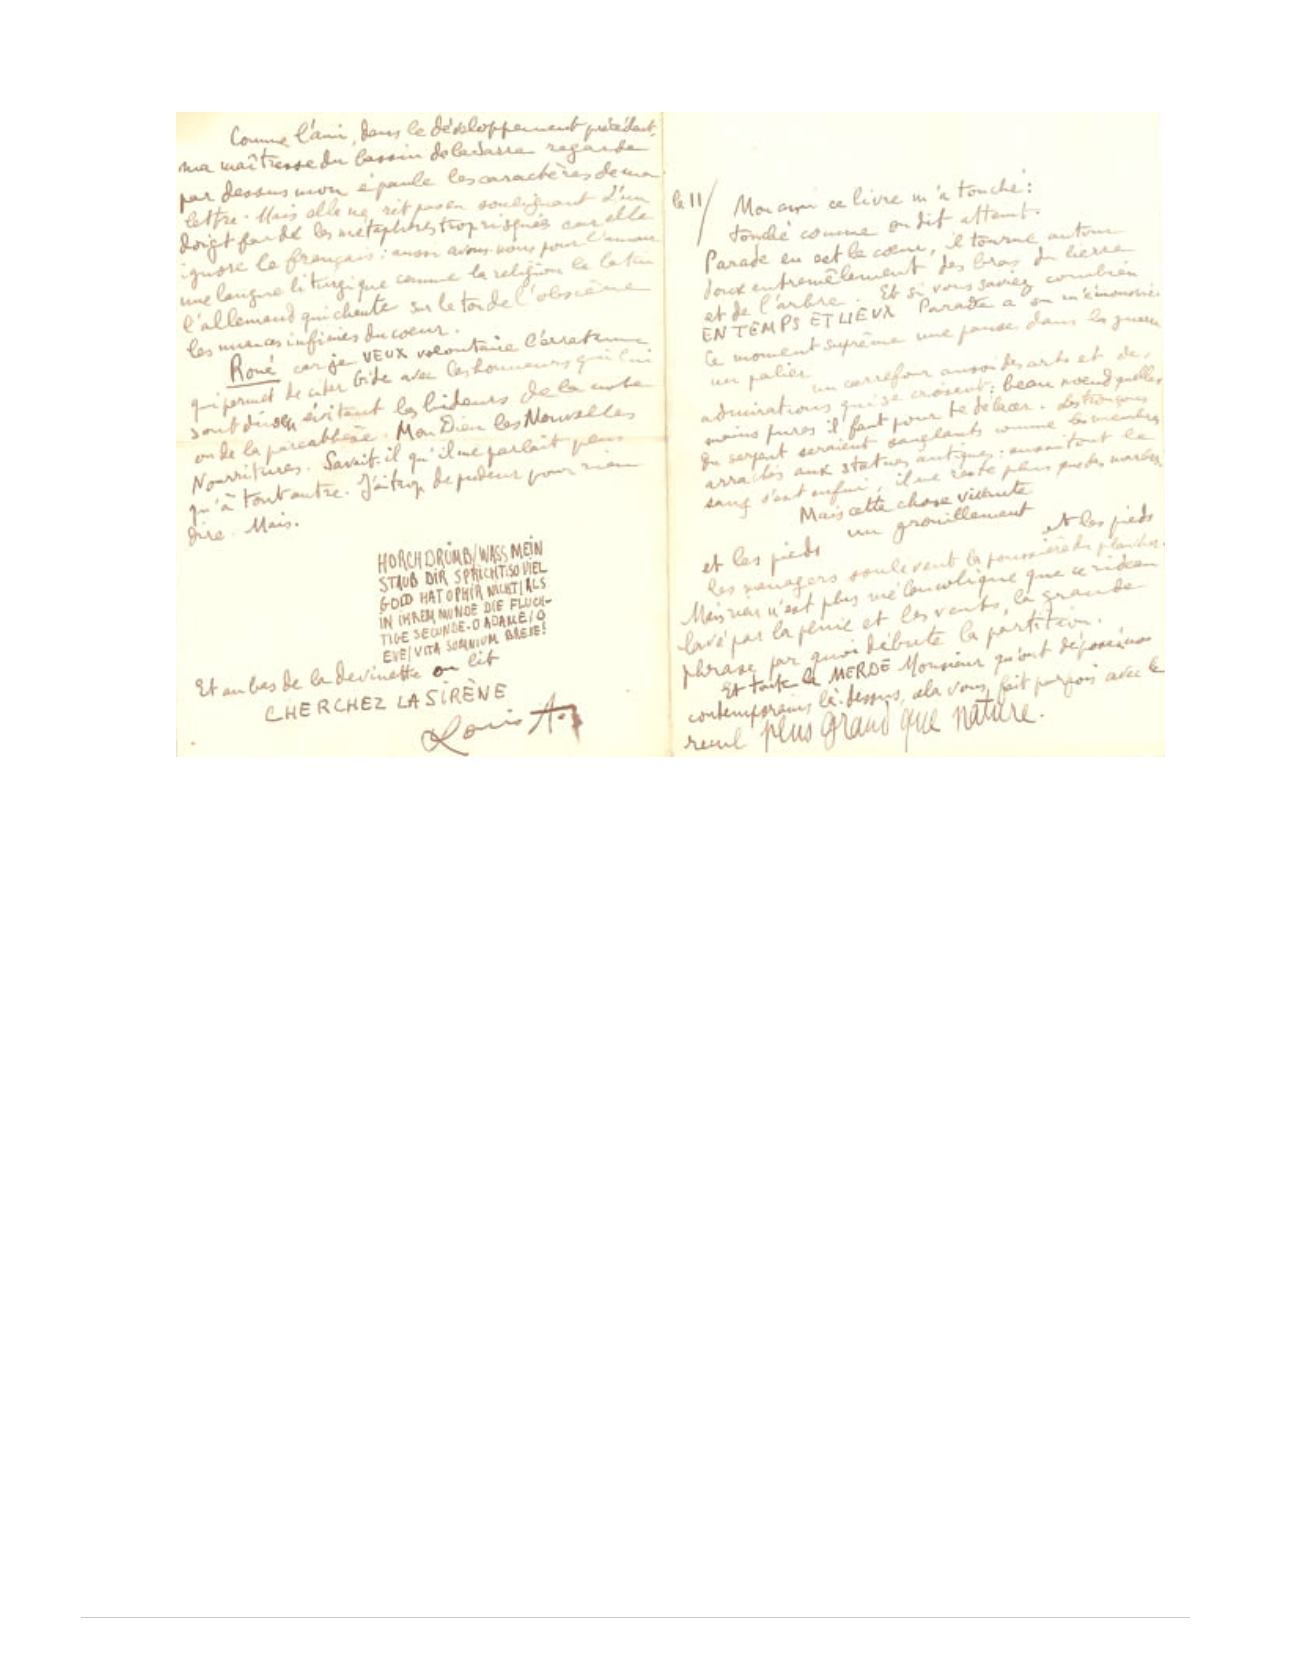 Comme l'ami, dans le développement précédent,
ma maîtresse du bassin de la Sarre regarde
par dessus mon épaule les caractères de ma
lettre. Mais elle ne rit pas en soulignant d'un
doigt fardé les métaphores trop risquées car elle
ignore le français : aussi avons-nous pour l'amour
une langue liturgique comme la religion le latin
l'allemand qui chante sur le ton de l'obscène
les nuances infimes du coeur.
Roné car je VEUX volontaire l'erratum
qui permet de citer Gide avec les honneurs qui lui
sont dus en évitant les hideurs de la note
ou de la parenthèse. Mon Dieu les Nouvelles
Nourritures. Savait-il qu'il me parlait plus
qu'à tout autre. J'ai trop de pudeur pour rien
dire. Mais.
HORCH DRUMB/WASS MEIN
STAUB DIR SPRICHT:SO VIEL
GOLD HAT OPHIR NICHT/ALS
IN IHREM MUNDE DIE FLUCH-
TIGE SECUNDE-O ADAME/O
EVE/VITA SOMNIUM BREVE!
Et au bas de la devinette on lit
CHERCHEZ LA SIRÈNE
Louis A.
le 11/ Mon ami ce livre m'a touché :
touché comme on dit atteint.
Parade en est le cœur, il tourne autour
doux entremêlement des bras du lierre
et de l'arbre. Et si vous saviez combien
EN TEMPS ET LIEUX Parade a on m'émouvoir
Ce moment suprême une pause dans la guerre
un palier
un carrefour aussi des arts et des
admirations qui se croisent : beau noeud quelles
mains pures il faut pour te délacer. Les tronçons
du serpent seraient sanglants comme les membres
arrachés aux statues antiques : aussitôt le
sang s'est enfui, il ne reste plus que des marbres.
Mais cette chose vivante
un grouillement
et les pieds et les pieds
les managers soulevent la poussière du plancher.
Mais rien n'est plus mélancolique que ce rideau
lavé par la pluie et les vents, la grande
phrase par quoi débute la partition.
Et toute la MERDE Monsieur qu'ont déposée nos
contemporains là-dessus, cela vous fait parfois avec le
recul plus grand que nature.